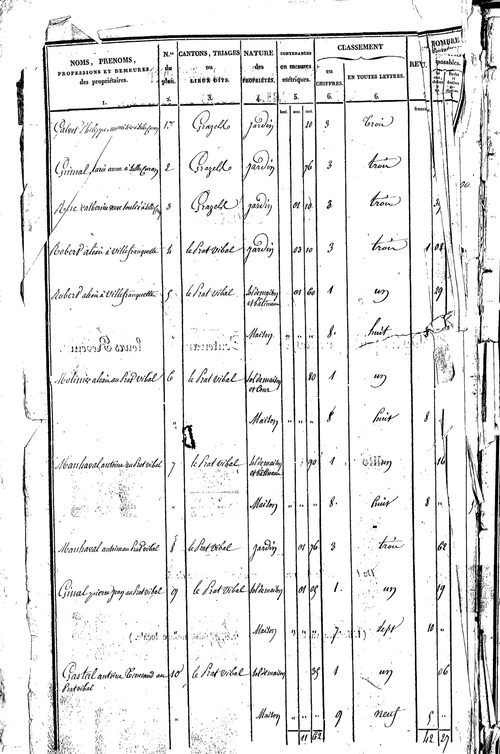 NOMS, PRENOMS, PROFESSIONS ET DEMEURES des propriétaires. N.os du plan. CANTONS, TRIAGES ou LIEUX DITS. NATURE des PROPRIÉTÉS. CONTENANCES en mesures métriques. CLASSEMENT en CHIFFRES. EN TOUTES LETTRES. REV. NOMBRE
1. 2. 3. 4. 5. 6. 6.
1er Jardin 10 3 trois
2 Jardin 76 3 trois
3 Jardin 01 10 3 trois
Robert alexis à Villefranquette 4 le Prat vibal Jardin 03 10 3 trois 1 08
Robert alexis à Villefranquette 5 le Prat vibal Sol de maison et bâtiment 01 60 1 un 29
Maison " " " 8 huit
6 le Prat vibal Sol de maison et Cour 80 1 un
Maison " " " 8 huit 8
Manhaval antoine au Prat vibal 7 le Prat vibal Sol de maison et bâtiment 90 1 un 16
Maison " " " 8 huit 8 "
Manhaval antoine au Prat vibal 8 le Prat vibal Jardin 01 76 3 trois 62
pierre Jean au Prat vibal 9 le Prat vibal Sol de maison 01 05 1 un 19
Maison " " " 7 sept 10 "
antoine au Prat vibal 10 le Prat vibal Sol de maison 35 1 un 06
Maison " " " 9 neuf 5 "
11 62 42 27